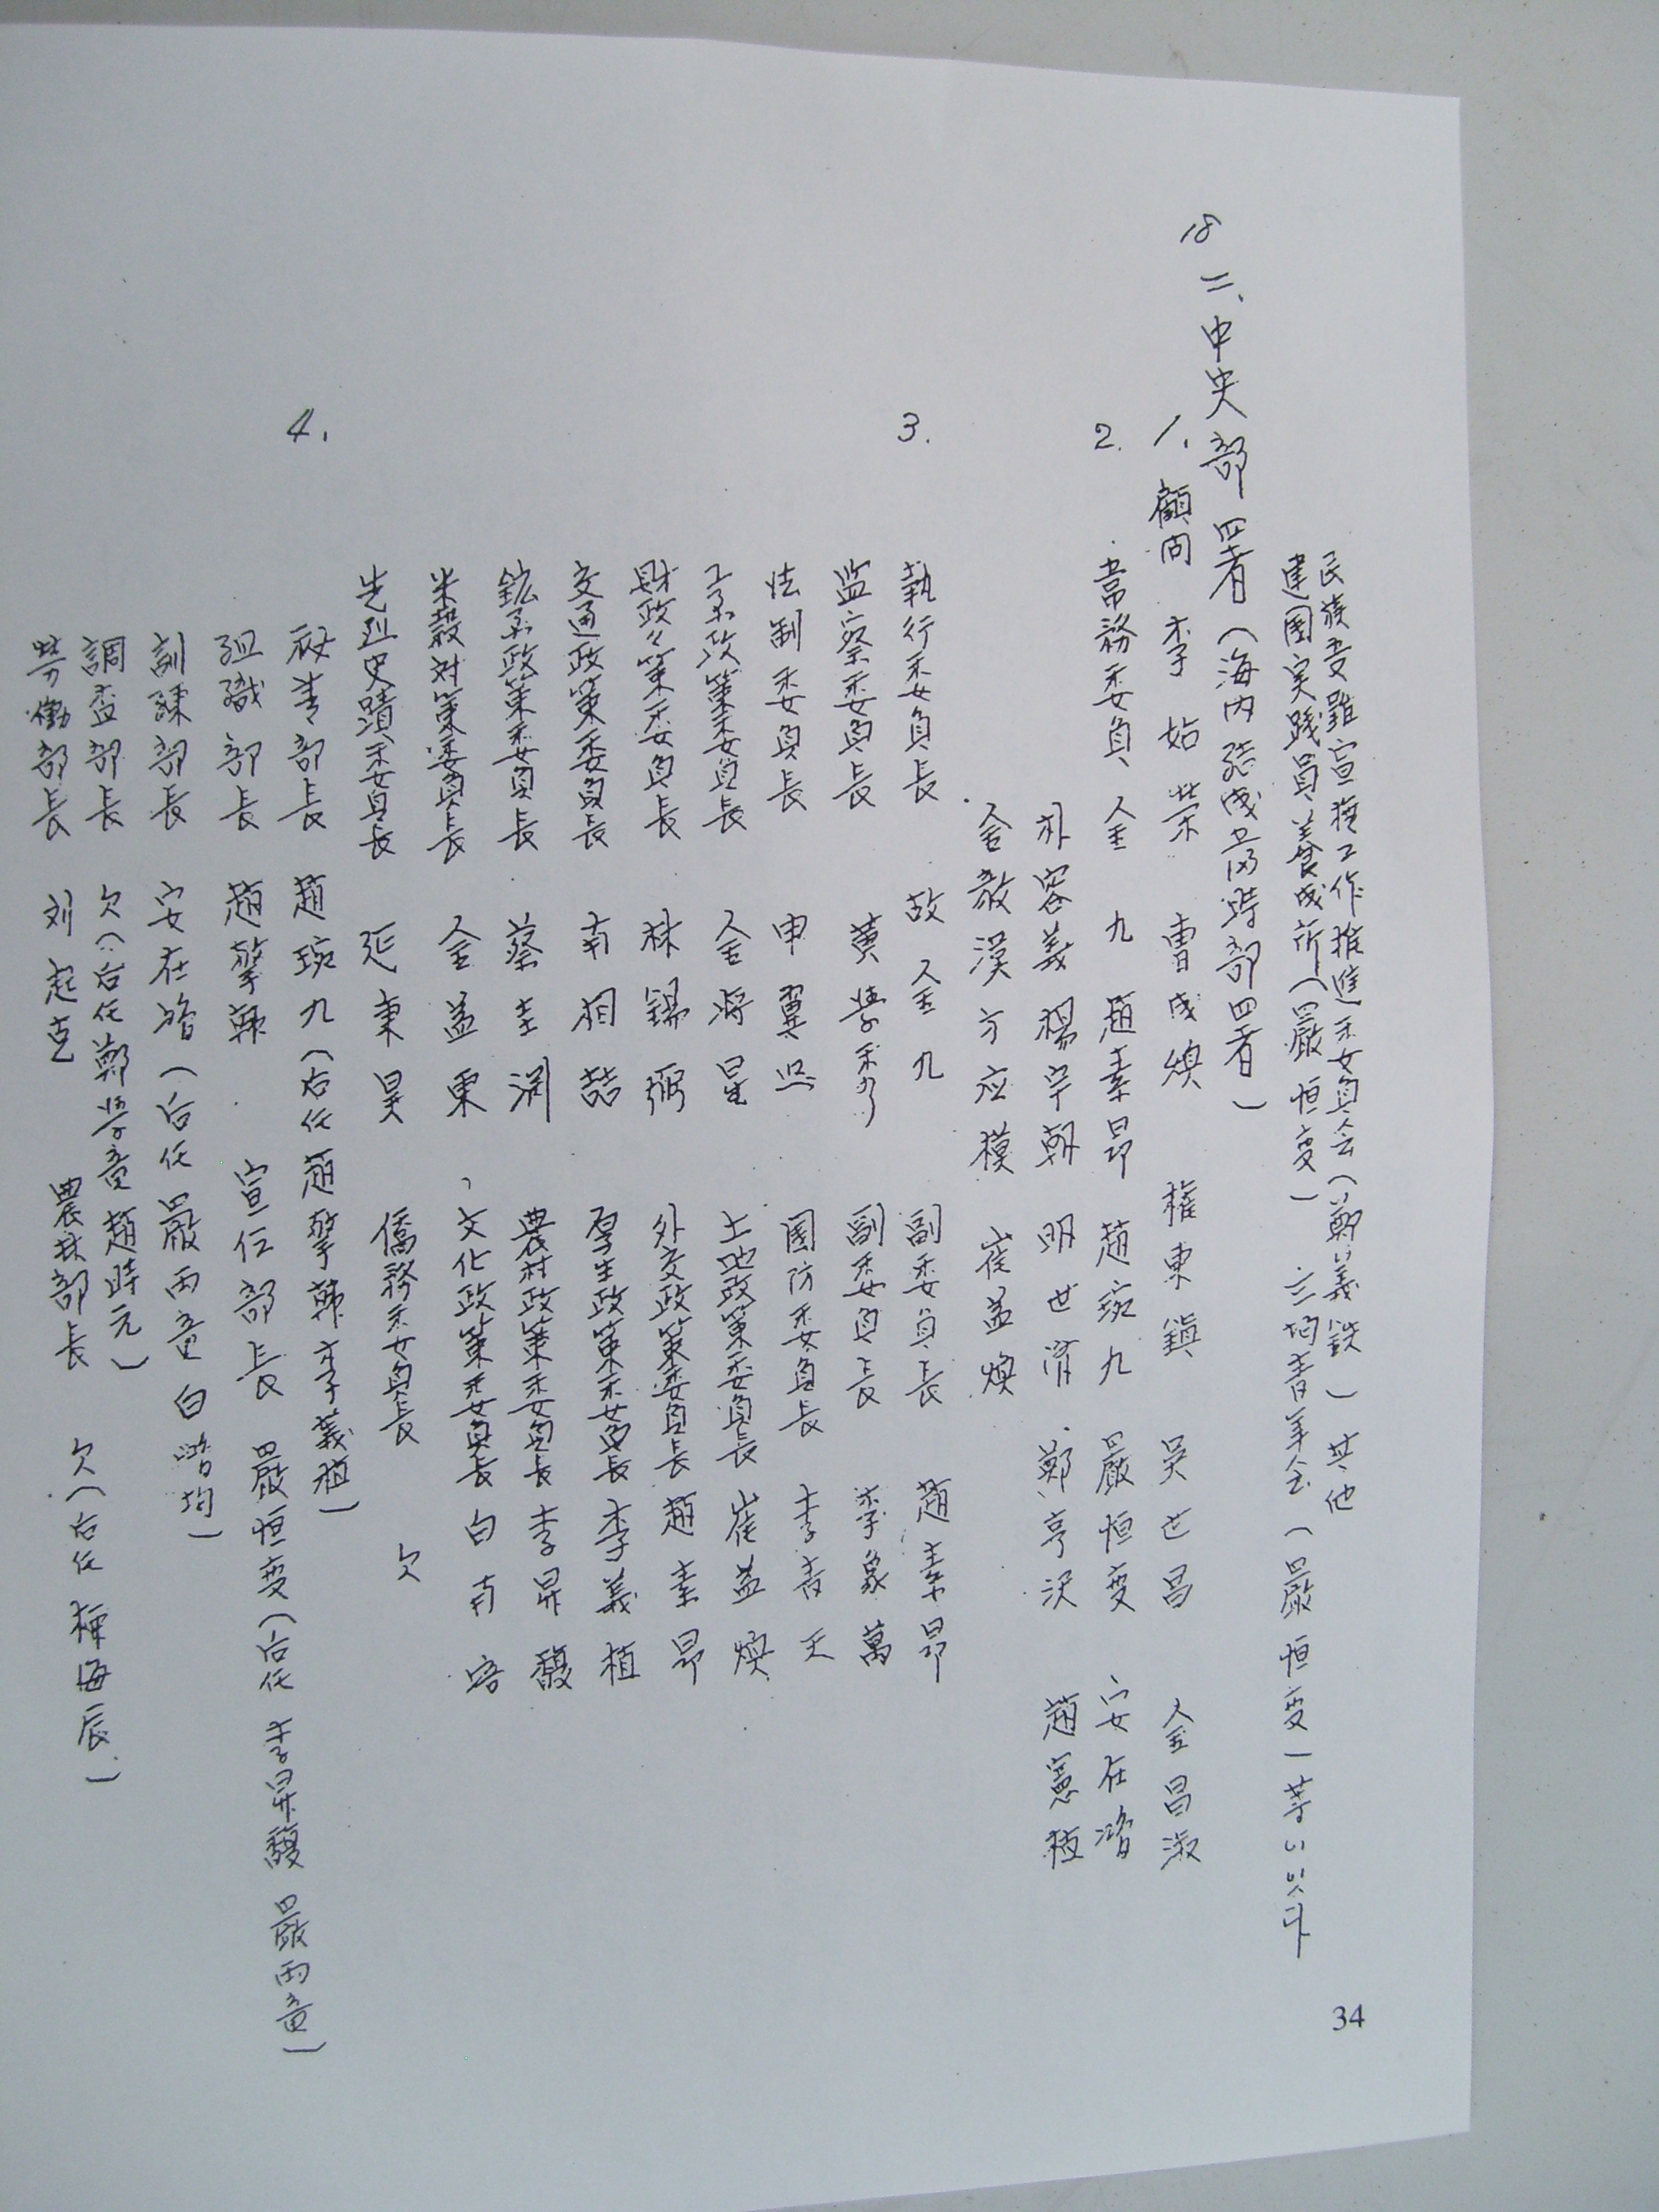 民族受難宣揚工作推進委員会(鄭義鉄) 其他
建国実践員養成所(嚴恒燮) 三均青年会(嚴恒燮)等이 있다
18 二、中央部 四者(海内 成立 時部四者)
1. 顧問 李始榮 曺成煥 權東鎮 吳世昌 金昌淑
2. 常務委員 金九 趙素昻 趙琬九 嚴恒燮 安在鴻
朴容義 楊宇朝 明世濟 鄭亨沢 趙憲植
金敎漢 方応模 崔益煥
3. 執行委員長 故 金九 副委員長 趙素昻
监察委員長 黄學秀 副委員長 李象萬
法制委員長 申翼熙 国防委員長 李青天
工業政策委員長 金將星 土地政策委員長 崔益煥
財政々策委員長 林錫弼 外交政策委員長 趙素昻
交通政策委員長 南相喆 厚生政策委員長 李義植
鉱業政策委員長 蔡圭淵 農村政策委員長 李昇馥
米穀対策委員長 金益東 、文化政策委員長 白南培
先烈史蹟委員長 延秉昊 僑務委員長 欠
4. 秘書部長 趙琬九(右任 趙擎韓 李義植)
組織部長 趙擎韓 宣伝部長 嚴恒燮(后任 李昇馥 嚴雨竜)
訓諫部長 安在鴻(后任 嚴雨竜 白濳均)
調查部長 欠(后任 鄭學竜 趙時元)
労働部長 刘起克 農林部長 欠(后任 海辰)
34